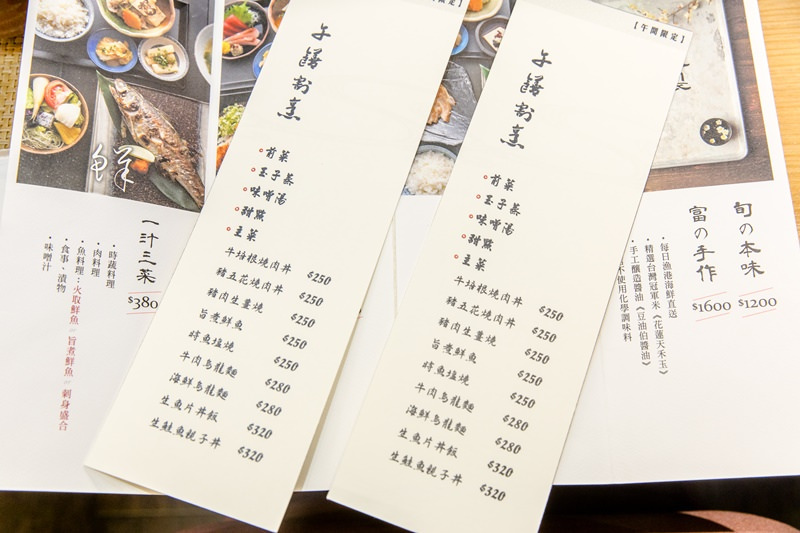 鮮
一汁三菜
$380
・時蔬料理
・肉料理
・魚料理：火取鮮魚 or 旨煮鮮魚 or 刺身盛合
・食事、漬物
・味噌汁
限定】
午膳割烹
前菜
玉子蒸
味噌湯
甜點
主菜
牛培根燒肉丼 $250
豬五花燒肉丼 $250
豬肉生薑燒 $250
旨煮鮮魚 $250
時魚塩燒 $250
牛肉烏龍麵 $280
海鮮烏龍麵 $280
生魚片丼飯 $320
生鮭魚親子丼 $320
【午間限定】
午膳割烹
前菜
玉子蒸
味噌湯
甜點
主菜
牛培根燒肉丼 $250
豬五花燒肉丼 $250
豬肉生薑燒 $250
旨煮鮮魚 $250
時魚塩燒 $250
牛肉烏龍麵 $280
海鮮烏龍麵 $280
生魚片丼飯 $320
生鮭魚親子丼 $320
旬の本味 $1200
富の手作 $1600
・每日漁港海鮮直送
・精選台灣冠軍米《花蓮天禾玉》
・手工釀造醬油《豆油伯醬油》
不使用化學調味料